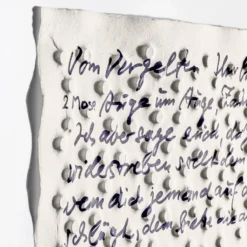 Vom Vergelten
2 Mose Auge um Auge
Ich aber sage euch
widerstreben sollt
wenn dich jemand auf
schlägt, dem biete